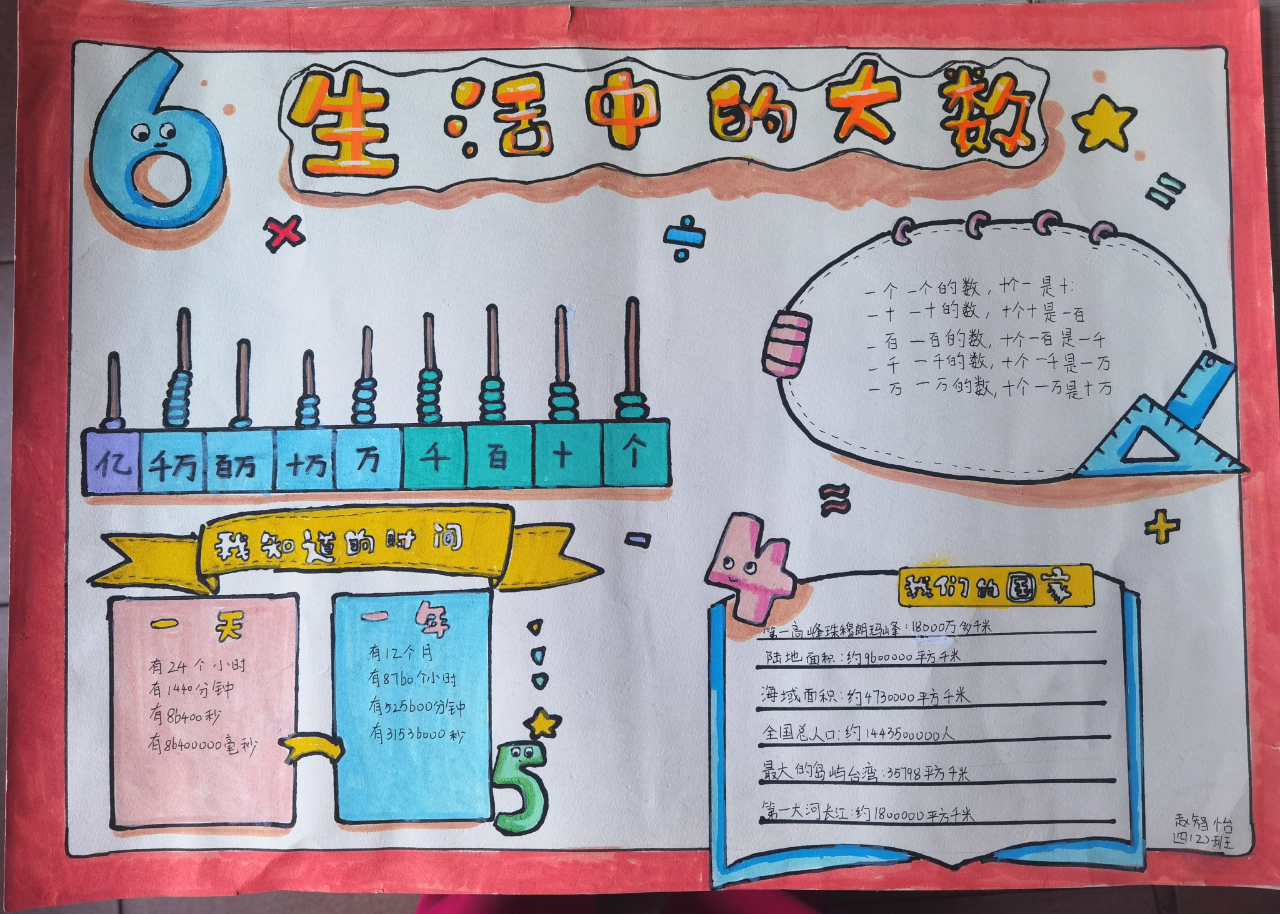 生活中的大数
一个一个的数,十个一是十:
一十一十的数,十个十是一百
一百一百的数,十个一百是一千
一千一千的数,十个一千是一万
一万一万的数,十个一万是十万
亿 千万 百万 十万 万 千 百 十 个
我知道的时间
一天
有24个小时
有1440分钟
有86400秒
有86400000毫秒
一年
有12个月
有8760个小时
有525600分钟
有31536000秒
我们的国家
第一高峰珠穆朗玛峰:18000万多千米
陆地面积:约9600000平方千米
海域面积:约4730000平方千米
全国总人口:约1443500000人
最大的岛屿台湾:35798平方千米
第一大河长江:约1800000平方千米
四(2)班